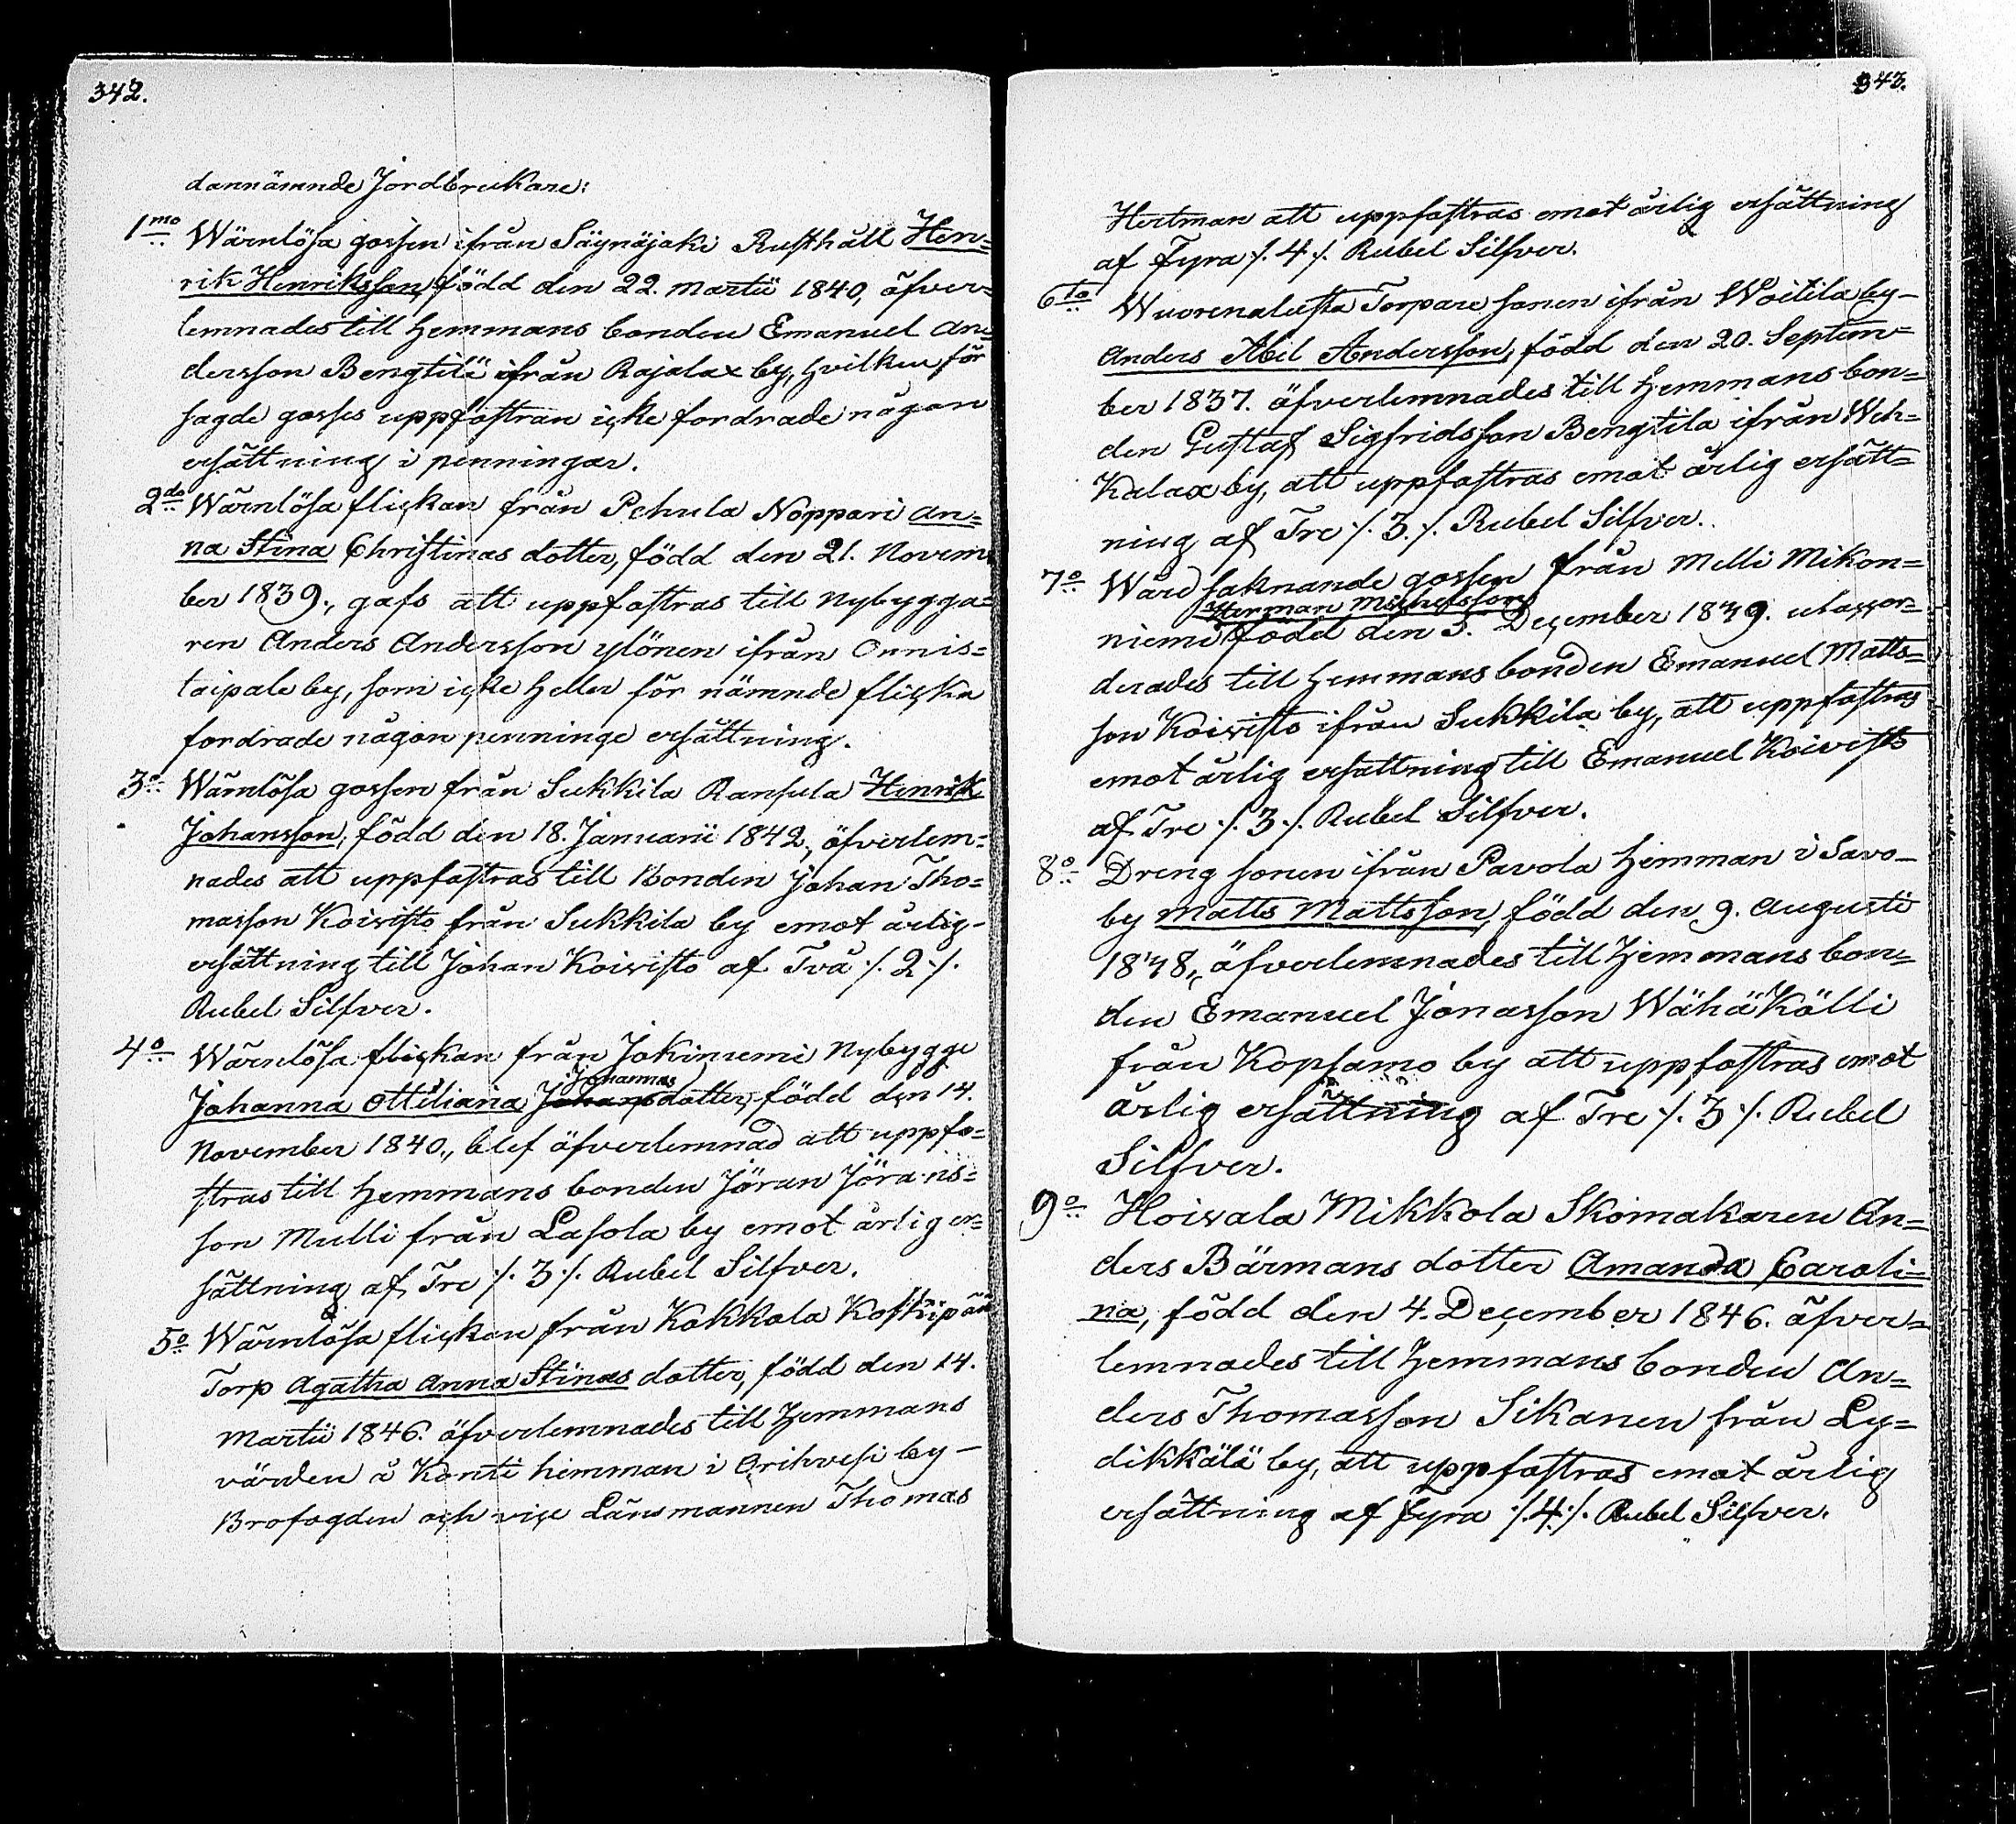 342.
dannämnde Jordbrukare:
1mo Wärnlösa gossen ifrån Säynäjoki Rusthåll Hen=
rik Henriksson, född den 22. Martii 1840, öfver=
lemnades till Hemmans bonden Emanuel An=
dersson Bengtilä ifrån Rajalax by, hvilken för
sagde gosses uppfostran icke fordrade någon
ersättning i penningar.
2do Wärnlösa flickan från Pehula Noppari An=
na Stina Christinas dotter, född den 21. Novem=
ber 1839., gafs att uppfostras till Nybygga=
ren Anders Andersson Ylönen ifrån Onnis=
taipale by, som icke heller för nämnde flicka
fordrade någon penninge ersättning.
3o Wärnlösa gossen från Sukkila Ransula Henrik
Johansson, född den 18. Januarii 1842., öfverlem=
nades att uppfostras till Bonden Johan Tho=
masson Koivisto från Sukkila by emot årlig-
ersättning till Johan Koivisto af Två ./. 2 ./.
Rubel Silfver.
4o Wärnlösa flickan från Jokiniemi Nybygge
Johanna Ottiliana Johans Johannas dotter, född den 14.
November 1840., blef öfverlemnad att uppfo=
stras till Hemmans bonden Jöran Jörans=
son Mulli från Lasola by emot årlig er=
sättning af Tre ./. 3 ./. Rubel Silfver.
5o Wärnlösa flickan från Kokkola Koskipää
Torp Agatha Anna Stinas dotter, född den 14.
Martii 1846. öfverlemnades till Hemmans
värden å Konti hemman i Orihvesi by-
Brofogden och vice Länsmannen Thomas
343.
Hertman att uppfostras emot årlig ersättning
af Fyra ./. 4 ./. Rubel Silfver.
6to Wuorenalusta Torpare sonen ifrån Woitila by-
Anders Abel Andersson, född den 20. Septem=
ber 1837. öfverlemnades till Hemmans bon=
den Gustaf Sigfridsson Bengtila ifrån Weh=
kalax by, att uppfostras emot årlig ersätt=
ning af Tre ./. 3 ./. Rubel Silfver.
7o Wård saknande gossen från Melli Mikon=
niemi Herman Michelsson född den 5. December 1849. utaccor=
derades till Hemmans bonden Emanuel Matts=
son Koivisto ifrån Sukkila by, att uppfostras
emot årlig ersättning till Emanuel Koivisto
af Tre ./. 3 ./. Rubel Silfver.
8o Dreng sonen ifrån Pavola hemman i Savo-
by Matts Mattsson, född den 9. Augusti
1848., öfverlemnades till Hemmans bon=
den Emanuel Jonasson Wähä Kölli
från Kopsamo by att uppfostras emot
årlig ersättning af Tre ./. 3 ./. Rubel
Silfver.
9o Hoivala Mikkola Skomakaren An=
ders Bärmans dotter Amanda Caroli=
na, född den 4. December 1846. öfver=
lemnades till Hemmans bonden An=
ders Thomasson Sikanen från Ly=
dikkälä by, att uppfostras emot årlig
ersättning af Fyra ./. 4 ./. Rubel Silfver.